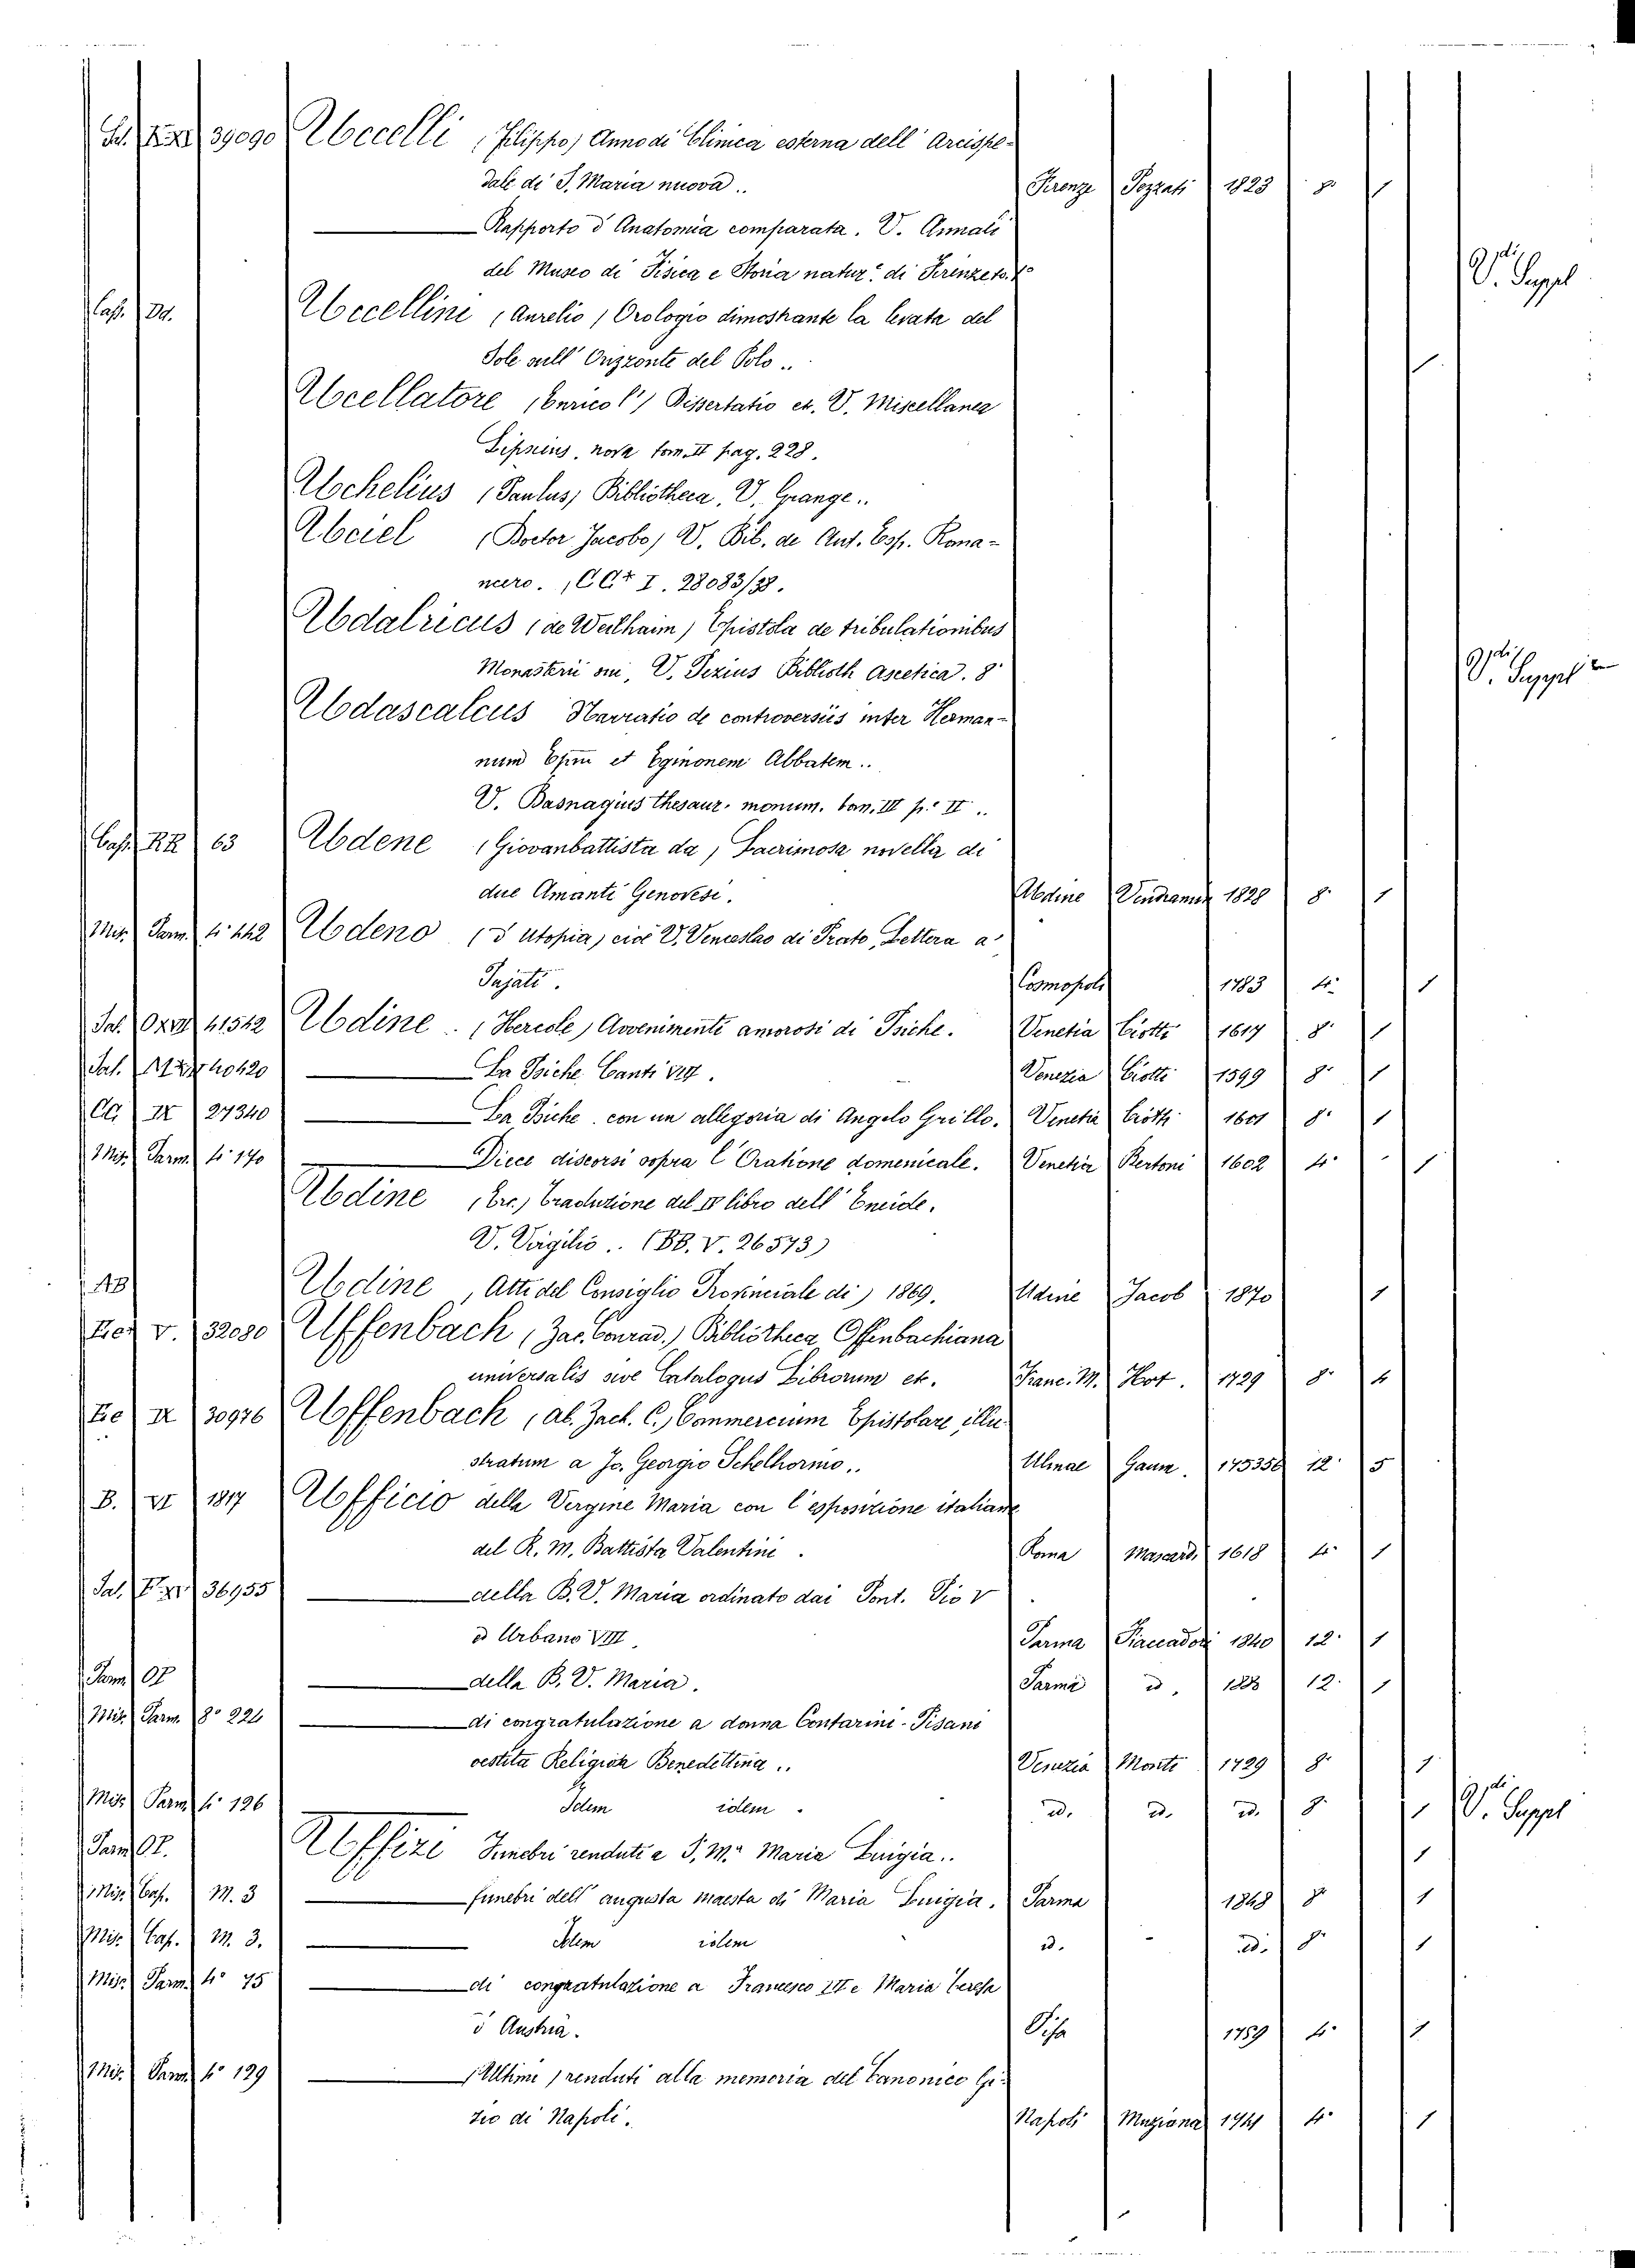 Sal. 39090 Uccelli (Filippo) Anno di Clinica esterna dell' Arcispe-
dale di S. Maria nuova.. Firenze Pezzati 1823 8º 1
Rapporto d'Anatomia comparata. V. Annali
del Museo di Fisica e Storia natur.e di Firenze to. 1º V. Suppl
Cass. Uccellini (Aurelio) Orologio dimostrante la levata del
Sole sull' Orizzonte del Polo.. 1
Uccellatore (Enrico l') Dissertatio et. V. Miscellanea
Lipsiens. nova tom. II pag. 228.
Uchelius (Paulus) Bibliotheca. V. Grange..
Uciel (Doctor Jacobo) V. Bib. de Aut. Esp. Roma-
ncero. (CC* I. 28083/38.
Udalricus (de Weilhaim) Epistola de tribulationibus
Monasterii sui, V. Pezius Biblioth Ascetica. 8º V. Suppl
Udascalcus Narratio de controversiis inter Herman-
num Epũm et Eginonem Abbatem..
V. Basnagius thesaur. monum. tom. III p.e II..
Cass. RR 63 Udene (Giovanbattista da) Lacrimosa novella di
due Amanti Genovesi. Udine Vendrame 1828 8º 1
Mis. Parm. 4º 442 Udeno (d'Utopia) cioè V. Venceslao di Prato, Lettera a
Pajati. Cosmopoli 1783 4º 1
Sal. 41542 Udine.. (Hercole) Avvenimenti amorosi di Psiche. Venetia Ciotti 1617 8º 1
Sal. 40420 La Psiche Canti VIII. Venezia Ciotti 1599 8º 1
CC IX 27340 La Psiche con un allegoria di Angelo Grillo. Venetia Ciotti 1601 8º 1
Mis. Parm. 4º 170 Diece discorsi sopra l'Oratione domenicale. Venetia Bertoni 1602 4º 1
Udine (Erc.) Traduzione del IV libro dell' Eneide.
V. Virgilio.. (BB. V. 26573)
AB Udine, Atti del Consiglio Provinciale di) 1869. Udine Jacob 1870 1
Ee V. 32080 Uffenbach (Zac. Conrad.) Bibliotheca Offenbachiana
universalis sive Catalogus Librorum et. Franc. M. Hort. 1729 8º 4
Ee IX 30976 Uffenbach (ab. Zach. C.) Commercium Epistolare illu-
stratum a Jo. Georgio Schelhornio.. Ulmae Gaum. 175356 12º 5
B. VI 1817 Ufficio della Vergine Maria con l'esposizione italiana
del R. M. Battista Valentini. Roma Mascardi 1618 4º 1
Sal. 36955 della B. V. Maria ordinato dai Pont. Pio V
ed Urbano VIII. Parma Fiaccadori 1840 12º 1
Parm. della B. V. Maria. Parma id. 12º 1
Mis. Parm. 8º 224 di congratulazione a donna Contarini-Pisani
vestita Religiosa Benedettina.. Venezia Monti 1729 8º 1
Mis. Parm. 4º 126 Idem idem. id. id. id. 8º 1 V. Suppl
Parm. Uffizi Funebri renduti a S. M.a Maria Luigia.. 1
Mis. Cas. M. 3 funebri dell' augusta maestà di Maria Luigia. Parma 1848 8º 1
Mis. Cas. M. 3. Idem idem id. id. 8º 1
Mis. Parm. 4º 75 di congratulazione a Francesco II e Maria Teresa
d'Austria. Pisa 1789 4º 1
Mis. Parm. 4º 129 (Ultimi) renduti alla memoria del Canonico Gi-
zio di Napoli. Napoli Muziana 1741 4º 1